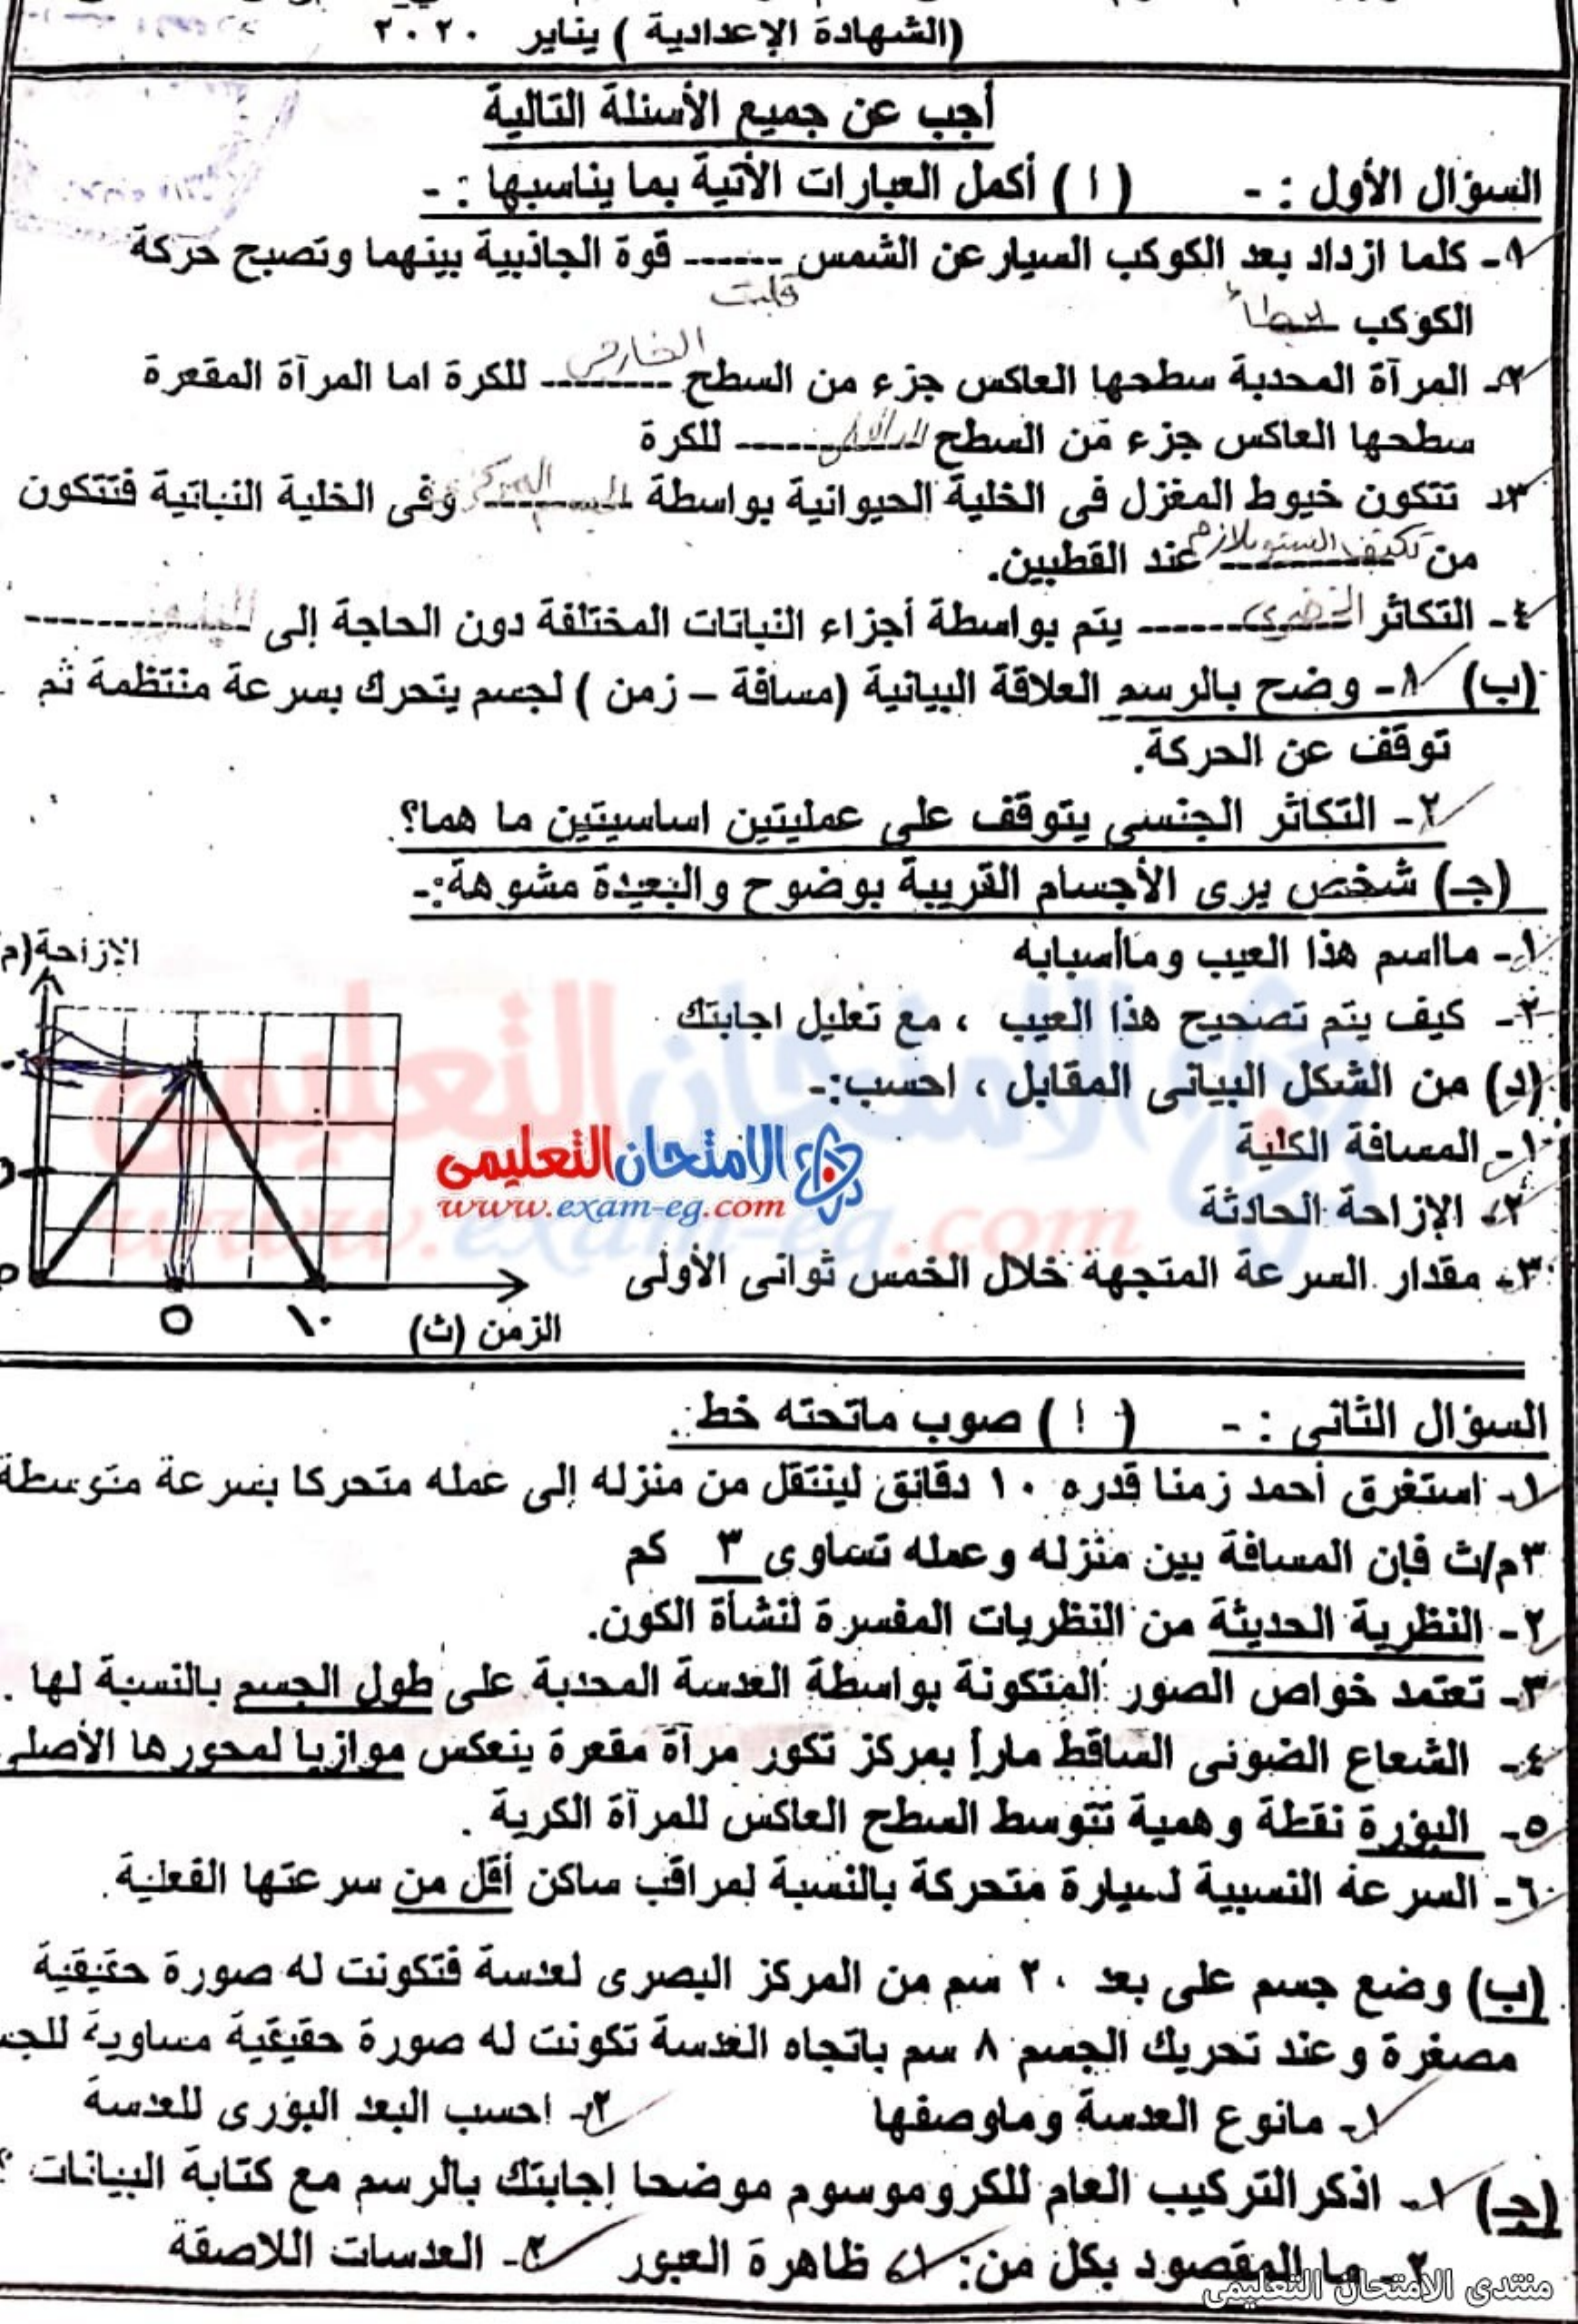 (الشهادة الإعدادية ) يناير ٢٠٢٠
أجب عن جميع الأسئلة التالية
السؤال الأول : - ( ا ) أكمل العبارات الأتية بما يناسبها : -
١- كلما ازداد بعد الكوكب السيار عن الشمس ------ قوة الجاذبية بينهما وتصبح حركة
قلت
الكوكب ابطأ
الخارجى
٢- المرآة المحدبة سطحها العاكس جزء من السطح -------- للكرة اما المرآة المقعرة
سطحها العاكس جزء من السطح -------- للكرة
٣- تتكون خيوط المغزل فى الخلية الحيوانية بواسطة الجسم المركزى وفى الخلية النباتية فتتكون
من تكثف السيتوبلازم عند القطبين.
٤- التكاثر الخضرى ------- يتم بواسطة أجزاء النباتات المختلفة دون الحاجة إلى ------------
(ب) ١- وضح بالرسم العلاقة البيانية (مسافة – زمن ) لجسم يتحرك بسرعة منتظمة ثم
توقف عن الحركة.
٢- التكاثر الجنسى يتوقف على عمليتين اساسيتين ما هما؟
(جـ) شخص يرى الأجسام القريبة بوضوح والبعيدة مشوهة:-
١- مااسم هذا العيب وماأسبابه
٢- كيف يتم تصحيح هذا العيب ، مع تعليل اجابتك
(د) من الشكل البيانى المقابل ، احسب:-
١- المسافة الكلية
٢- الإزاحة الحادثة
٣- مقدار السرعة المتجهة خلال الخمس ثوانى الأولى
الإزاحة(م
٥ ١٠
الزمن (ث)
الامتحان التعليمى
www.exam-eg.com
السؤال الثانى : - ( ا ) صوب ماتحته خط :
١- استغرق أحمد زمنا قدره ١٠ دقائق لينتقل من منزله إلى عمله متحركا بسرعة متوسطة
٣م/ث فإن المسافة بين منزله وعمله تساوى ٣ كم
٢- النظرية الحديثة من النظريات المفسرة لنشأة الكون.
٣- تعتمد خواص الصور المتكونة بواسطة العدسة المحدبة على طول الجسم بالنسبة لها .
٤- الشعاع الضوئى الساقط ماراً بمركز تكور مرآة مقعرة ينعكس موازيا لمحورها الأصلى
٥- البؤرة نقطة وهمية تتوسط السطح العاكس للمرآة الكرية .
٦- السرعة النسبية لسيارة متحركة بالنسبة لمراقب ساكن أقل من سرعتها الفعلية.
(ب) وضع جسم على بعد ٢٠ سم من المركز البصرى لعدسة فتكونت له صورة حقيقية
مصغرة وعند تحريك الجسم ٨ سم باتجاه العدسة تكونت له صورة حقيقية مساوية للجس
١- مانوع العدسة وماوصفها ٢- احسب البعد البؤرى للعدسة
(جـ) ١- اذكر التركيب العام للكروموسوم موضحا إجابتك بالرسم مع كتابة البيانات ؟
٢- ما المقصود بكل من: ١- ظاهرة العبور ٢- العدسات اللاصقة
منتدى الامتحان التعليمى